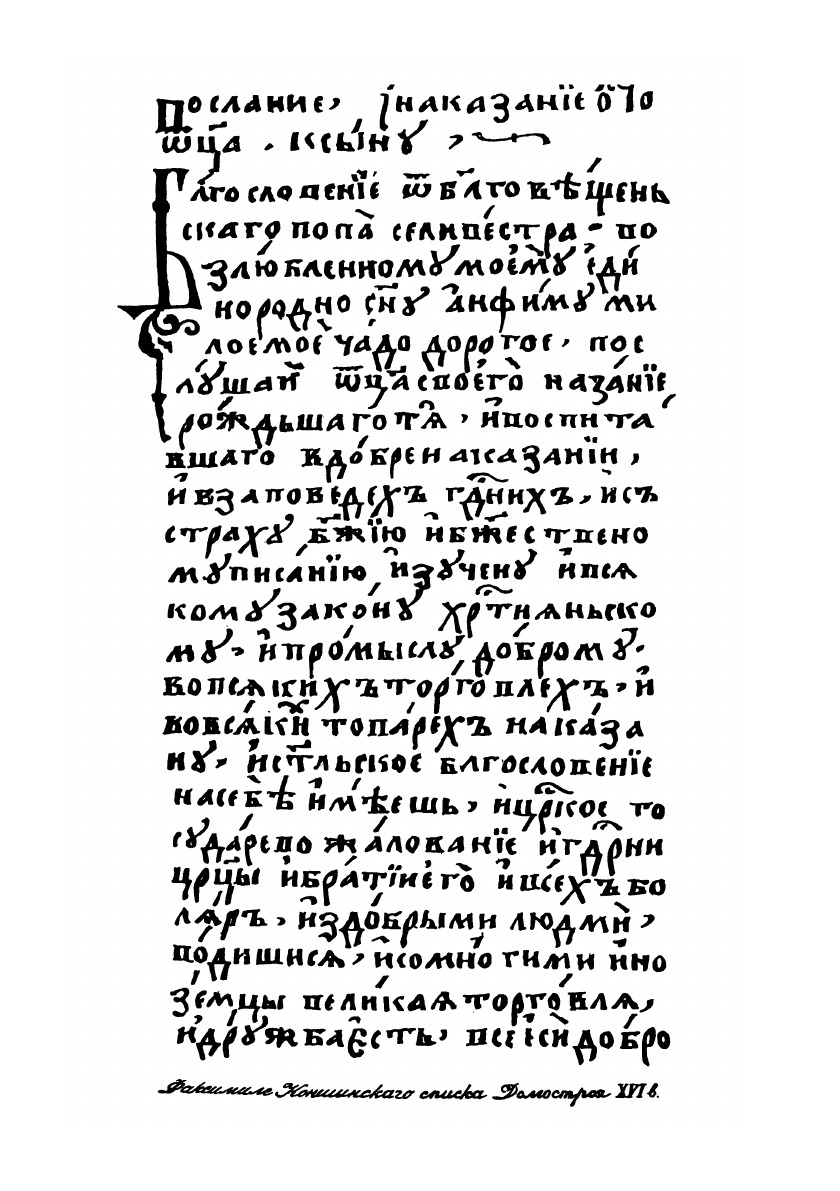 Послание, і наказанїе ѿ то
ѿца . к сыну ,
Благословенїе ѿ благовѣщень
скаго попа селивестра · во
злюбленному моему еди
нородно сн҃у анфиму ми
лое мое чадо дорогое, пос
лушаи ѿца своего наказанїе
рождьшаго тѧ, и воспита
вшаго в добре наказанїи,
и в заповедехъ гдⷭ҇нихъ, и съ
страху бж҃їю и бж҃ествено
му писанїю, изучену и всѧ
кому закону хрⷭ҇тиѧньско
му, и промыслу доброму.
во всѧкихъ торговлехъ, и
во всѧкїи товарехъ наказа
ну, и ст҃льское благословенїе
на себѣ имѣешь, и цр҃кое го
сударево жалованїе и гдⷭ҇рни
црц҃ы и братїи его и всехъ бо
лѧръ, и з добрыми людми,
водишисѧ, и со многими ино
земцы великаѧ торговлѧ,
и дружба есть, все еси добро
Факсимиле Коншинскаго списка Домостроя XVI в.